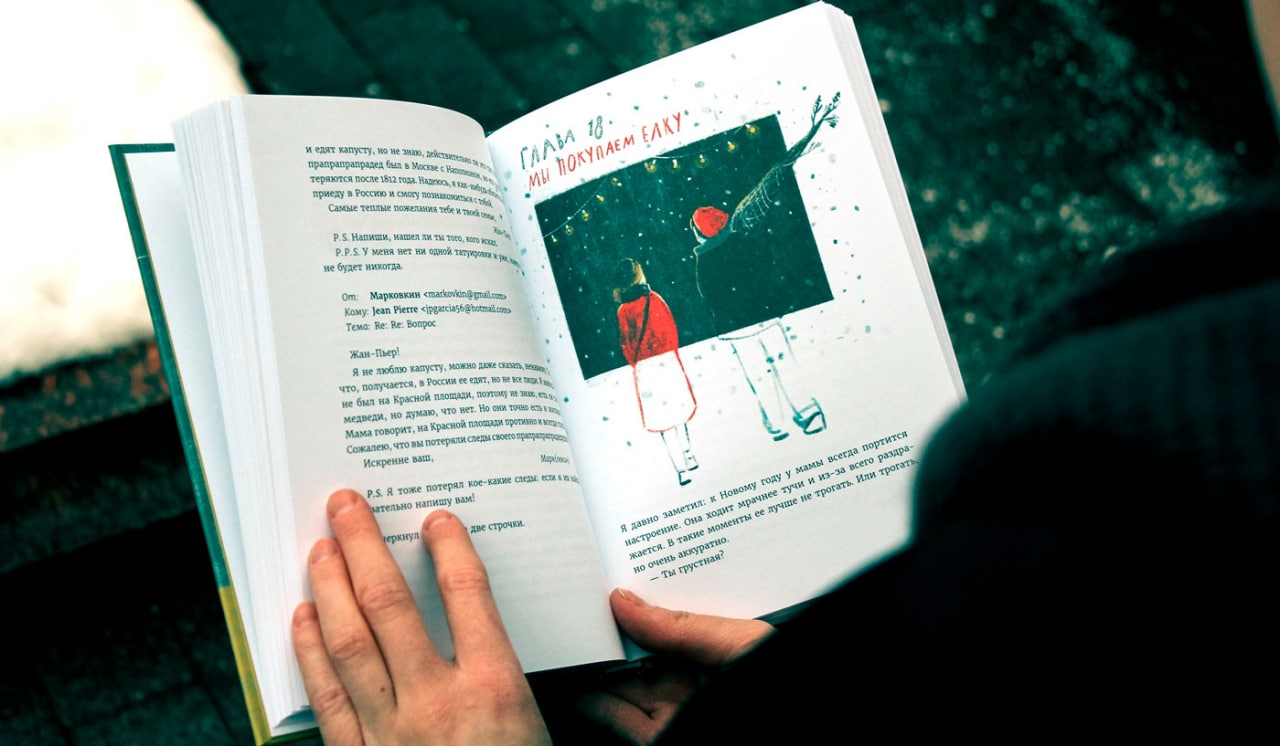 и едят капусту, но не знаю, действительно ли это
прапрапрапрадед был в Москве с Наполеоном, но
теряются после 1812 года. Надеюсь, я как-нибудь
приеду в Россию и смогу познакомиться с тобой.
Самые теплые пожелания тебе и твоей семье,
P.S. Напиши, нашел ли ты того, кого искал.
P.P.S. У меня нет ни одной татуировки и уже,
не будет никогда.
От: Марковкин <markovkin@gmail.com>
Кому: Jean Pierre <jpgarcia56@hotmail.com>
Тема: Re: Re: Вопрос
Жан-Пьер!
Я не люблю капусту, можно даже сказать,
что, получается, в России ее едят, но не все люди. Я
не был на Красной площади, поэтому не знаю, есть
медведи, но думаю, что нет. Но они точно есть в
Мама говорит, на Красной площади противно и
Сожалею, что вы потеряли следы своего
Искренне ваш,
P.S. Я тоже потерял кое-какие следы: если я их
напишу вам!
две строчки.
ГЛАВА 18
МЫ ПОКУПАЕМ ЕЛКУ
Я давно заметил: к Новому году у мамы всегда портится
настроение. Она ходит мрачнее тучи и из-за всего раздра-
жается. В такие моменты ее лучше не трогать. Или трогать,
но очень аккуратно.
— Ты грустная?